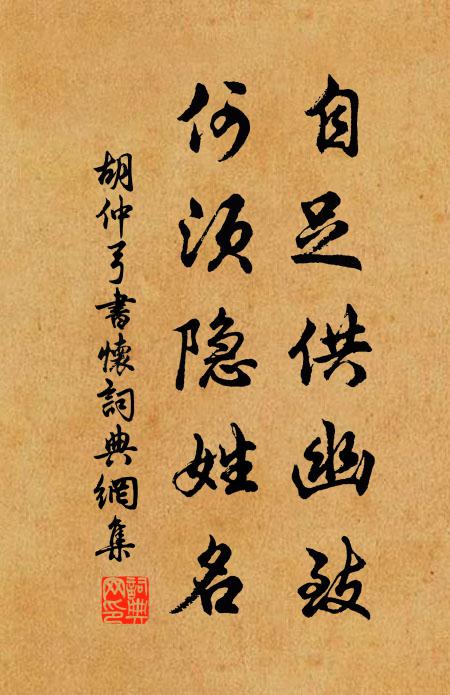 自足供幽致
何须隐姓名
胡仲弓書懷詞典網集
詞典
网印